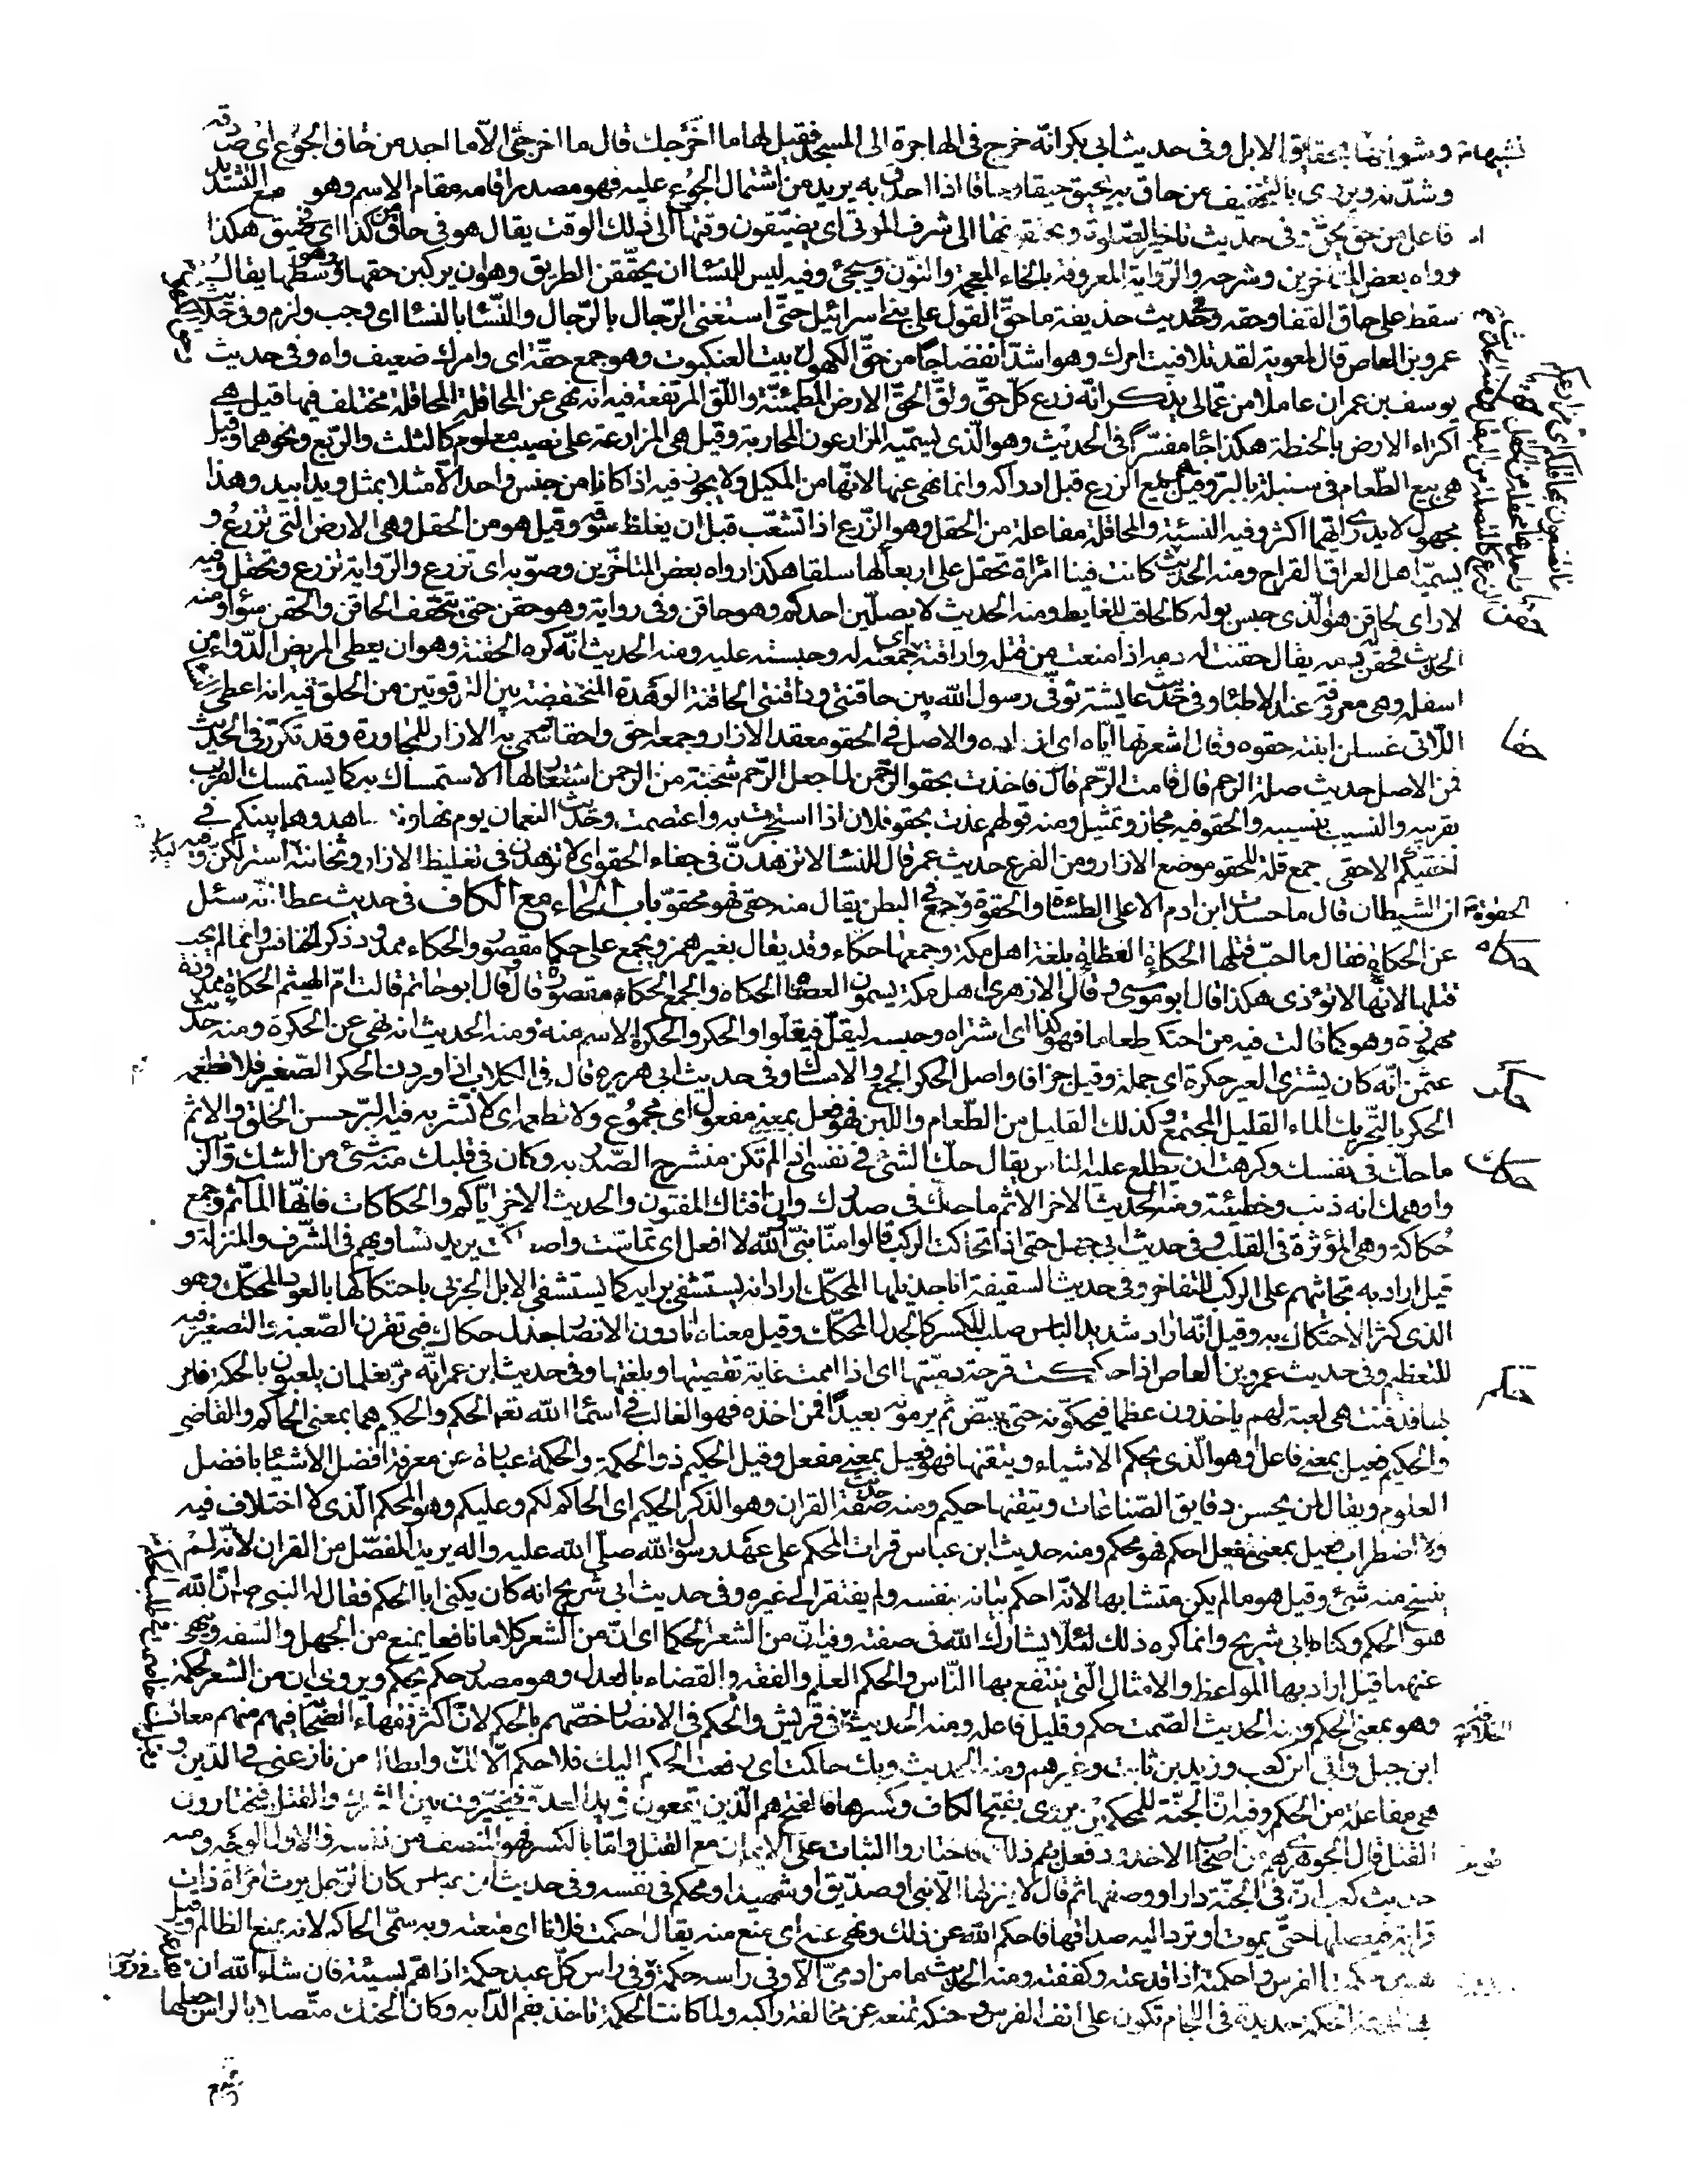 تشبيها وشواربها بحقايق الابل وفى حديث ابى بكر انه خرج فى الهاجرة الى المسجد فقيل لها ما اخرجك قال ما اخرجنى الا ما اجد من حاق الجوع اى صدقه
وشدته ويروى بالتخفيف من حاق به يحيق حيقا وحاقا اذا احدق به يريد من اشتمال الجوع عليه فهو مصدر اقامه مقام الاسم وهو مع التشديد
فاعل من حق يحق وفى حديث تاخير الصلوة وتحتقونها الى شرف الموتى اى يضيقون وقتها الى ذلك الوقت يقال هو فى حاق من كذا اى فى ضيق هكذا
رواه بعض المتاخرين وشرحه والرواية المعروفة بالخاء المعجمة والنون وسيجئ وفيه ليس للنسا ان يحققن الطريق وهو ان يركبن حقها وهو وسطها يقال
سقط على حاق القفا وحقه وفى حديث حذيفة ما حق القول على بنى اسرائيل حتى استغنى الرجال بالرجال والنسا بالنسا اى وجب ولزم وفى حديث
عمرو بن العاص قال لمعوية لقد تلافيت امرك وهو اشد انفضاجا من حق الكهول بيت العنكبوت وهو جمع حقة اى وامرك ضعيف واه وفى حديث
يوسف بن عمران عاملا من عمالى يذكر انه زرع كل حق ولق الحق الارض المطمئنة واللق المرتفعة فيه انه نهى عن المحاقلة المحاقلة مختلف فيها قيل هى
اكتراء الارض بالحنطة هكذا جا مفسرا فى الحديث وهو الذى يسميه الزارعون المحارثة وقيل هى المزارعة على نصيب معلوم كالثلث والربع ونحوهما وقيل
هى بيع الطعام فى سنبله بالبر وقيل بيع الزرع قبل ادراكه وانما نهى عنها لانها من المكيل ولا يجوز فيه اذا كانا من جنس واحد الا مثلا بمثل ويدا بيد وهذا
مجهول لا يدرى ايهما اكثر وفيه النسيئة والمحاقلة مفاعلة من الحقل وهو الزرع اذا تشعب قبل ان يغلظ سوقه وقيل هو من الحقل وهى الارض التى تزرع و
يسميه اهل العراق القراح ومنه الحديث كانت فينا امراة تحقل على اربعا لها سلقا هكذا رواه بعض المتاخرين وصوبه اى تزرع والرواية تزرع وتحقل وفيه
لا راى لحاقن هو الذى حبس بوله كالحاقب للغايط ومنه الحديث لا يصلين احدكم وهو حاقن وفى رواية وهو حقن حتى يتخفف الحاقن والحقن سوا ومنه
الحديث فحقن له دمه يقال حقنت له دمه اذا منعت من قتله واراقته اى جمعته له وحبسته عليه ومنه الحديث انه كره الحقنة وهو ان يعطى المريض الدواء من
اسفله وهى معروفة عند الاطبا وفى حديث عايشة توفى رسول الله بين حاقنتى وذاقنتى الحاقنة الوهدة المنخفضة بين الترقوتين من الحلق فيه انه اعطى
اللاتى غسلن ابنته حقوه وقال اشعرنها اياه اى ازاره والاصل فى الحقو معقد الازار وجمعه احق واحقا ثم سمى به الازار للمجاورة وقد تكرر فى الحديث
فمن الاصل حديث صلة الرحم قال قامت الرحم قال فاخذت بحقو الرحمن لما جعل الرحم شجنة من الرحمن استعار لها الاستمساك به كما يستمسك القريب
بقريبه والنسيب بنسيبه والحقو فيه مجاز وتمثيل ومنه قولهم عذت بحقو فلان اذا استجرت به واعتصمت وحديث النعمان يوم نهاوند تعاهدوهما بينكم فى
احقيكم الاحقى جمع قلة للحقو موضع الازار ومن الفرع حديث عمر قال للنسا لا تزهدن فى جفاء الحقو اى لا تزهدن فى تغليظ الازار وثخانته استر لكن وفيه
ان الشيطان قال ما حسدت ابن ادم الا على الطساة والحقوة الحقوة وجع فى البطن يقال منه حقى فهو محقو باب الحاء مع الكاف فى حديث عطا انه سئل
عن الحكاة فقال ما احب قتلها الحكاة العظاة بلغة اهل مكة وجمعها حكاء وقد يقال بغير همز ويجمع على حكا مقصور والحكاء ممدود ذكر الخنافس وانما لم يحب
قتلها لانها لا تؤذى هكذا قال ابو موسى وقال الازهرى اهل مكة يسمون العضاة الحكاة والجمع الحكا مقصورة قال وقال ابو حاتم قالت ام الهيثم الحكاة ممدودة
مهموزة وهو كما قالت فيه من احتكر طعاما فهو كذا اى اشتراه وحبسه ليقل فيغلوا والحكر والحكرة الاسم منه ومنه الحديث انه نهى عن الحكرة ومنه حديث
عثمن انه كان يشترى العير حكرة اى جملة وقيل جزافا واصل الحكر الجمع والامساك وفى حديث ابى هريرة قال فى الكلاب اذا وردن الحكر الصغير فلا تطعمه
الحكر بالتحريك الماء القليل المجتمع وكذلك القليل من الطعام واللبن فهو فعل بمعنى مفعول اى مجموع ولا تطعمه اى لا تشربه فيه البر حسن الخلق والاثم
ما حك فى نفسك وكرهت ان يطلع عليه الناس يقال حك الشئ فى نفسى اذا لم تكن منشرح الصدر به وكان فى قلبك منه شئ من الشك والريب
واوهمك انه ذنب وخطيئة ومنه الحديث الاخر الاثم ما حك فى صدرك وان افتاك المفتون والحديث الاخر اياكم والحكاكات فانها المآثم وجمع
حكاكة وهى المؤثرة فى القلب وفى حديث ابى جهل حتى اذا تحاكت الركب قالوا منا نبى والله لا افعل اى تماست واصطكت يريد تساويهم فى الشرف والمنزلة و
قيل اراد به تجاثيهم على الركب للتفاخر وفى حديث السقيفة انا جذيلها المحكك اراد انه يستشفى برايه كما يستشفى الابل الجربى باحتكاكها بالعود المحكك وهو
الذى كثر الاحتكاك به وقيل انه اراد شديد الباس صلب المكسر كالجذل المحكك وقيل معناه انا دون الانصار جذل حكاك فبى تقرن الصعبة والتصغير فيه
للتعظيم وفى حديث عمرو بن العاص اذا حككت قرحة دميتها اى اذا اممت غاية تقصيتها وبلغتها وفى حديث ابن عمر انه مر بغلمان يلعبون بالحكة فامر
بها فدفنت هى لعبة لهم ياخذون عظما فيحكونه حتى يبيض ثم يرمونه بعيدا فمن اخذه فهو الغالب فى اسما الله تعالى الحكم والحكيم هما بمعنى الحاكم والقاضى
والحكيم فعيل بمعنى فاعل وهو الذى يحكم الاشياء ويتقنها فهو فعيل بمعنى مفعل وقيل الحكيم ذو الحكمة والحكمة عبارة عن معرفة افضل الاشيا بافضل
العلوم ويقال لمن يحسن دقايق الصناعات ويتقنها حكيم ومنه حديث صفة القران وهو الذكر الحكيم اى الحاكم لكم وعليكم وهو المحكم الذى لا اختلاف فيه
ولا اضطراب فعيل بمعنى مفعل احكم فهو محكم ومنه حديث ابن عباس قرات المحكم على عهد رسول الله صلى الله عليه واله يريد المفصل من القران لانه لم
ينسخ منه شئ وقيل هو ما لم يكن متشابها لانه احكم بيانه بنفسه ولم يفتقر الى غيره وفى حديث ابى شريح انه كان يكنى ابا الحكم فقال له النبى ص ان الله
هو الحكم وكناه بابى شريح وانما كره ذلك لئلا يشارك الله فى صفته وفيه ان من الشعر لحكما اى ان من الشعر كلاما نافعا يمنع من الجهل والسفه وينهى
عنهما قيل اراد بها المواعظ والامثال التى ينتفع بها الناس والحكم العلم والفقه والقضاء بالعدل وهو مصدر حكم يحكم ويروى ان من الشعر لحكمة
وهو بمعنى الحكم ومنه الحديث الصمت حكم وقليل فاعله ومنه الحديث الخلافة فى قريش والحكم فى الانصار خصهم بالحكم لان اكثر فقهاء الصحابة فيهم منهم معاذ
ابن جبل وابى ابن كعب وزيد بن ثابت وغيرهم ومنه الحديث وبك حاكمت اى رفعت الحكم اليك فلا حكم الا لك وابطال من نازعنى فى الدين و
هى مفاعلة من الحكم وفيه ان الجنة للمحكمين يروى بفتح الكاف وكسرها فالفتح هم الذين يقعون فى يد العدو فيخيرون بين الشرك والقتل فيختارون
القتل قال الجوهرى هم من اصحاب الاخدود فعل بهم ذلك فاختاروا الثبات على الايمان مع القتل واما بالكسر فهو المنصف من نفسه والاول الوجه ومنه
حديث كعب ان فى الجنة دارا ووصفها ثم قال لا ينزلها الا نبى او صديق او شهيد او محكم فى نفسه وفى حديث ابن عباس كان الرجل يرث امراة ذات
قرابة فيعضلها حتى يموت او ترد اليه صداقها فاحكم الله عن ذلك ونهى عنه اى منع منه يقال احكمت فلانا اى منعته وبه سمى الحاكم لانه يمنع الظالم وقيل
هو من حكمت الفرس واحكمته اذا قدعته وكففته ومنه الحديث ما من ادمى الا وفى راسه حكمة وفى راس كل عبد حكمة اذا هم بسيئة فان شاء الله ان
الحكمة حديدة فى اللجام تكون على انف الفرس وحنكه تمنعه عن مخالفة راكبه ولما كانت الحكمة تاخذ بفم الدابة وكان الحنك متصلا بالراس جعلها
حقل
حقن
حقا
حكاه
حكر
حكك
حكم